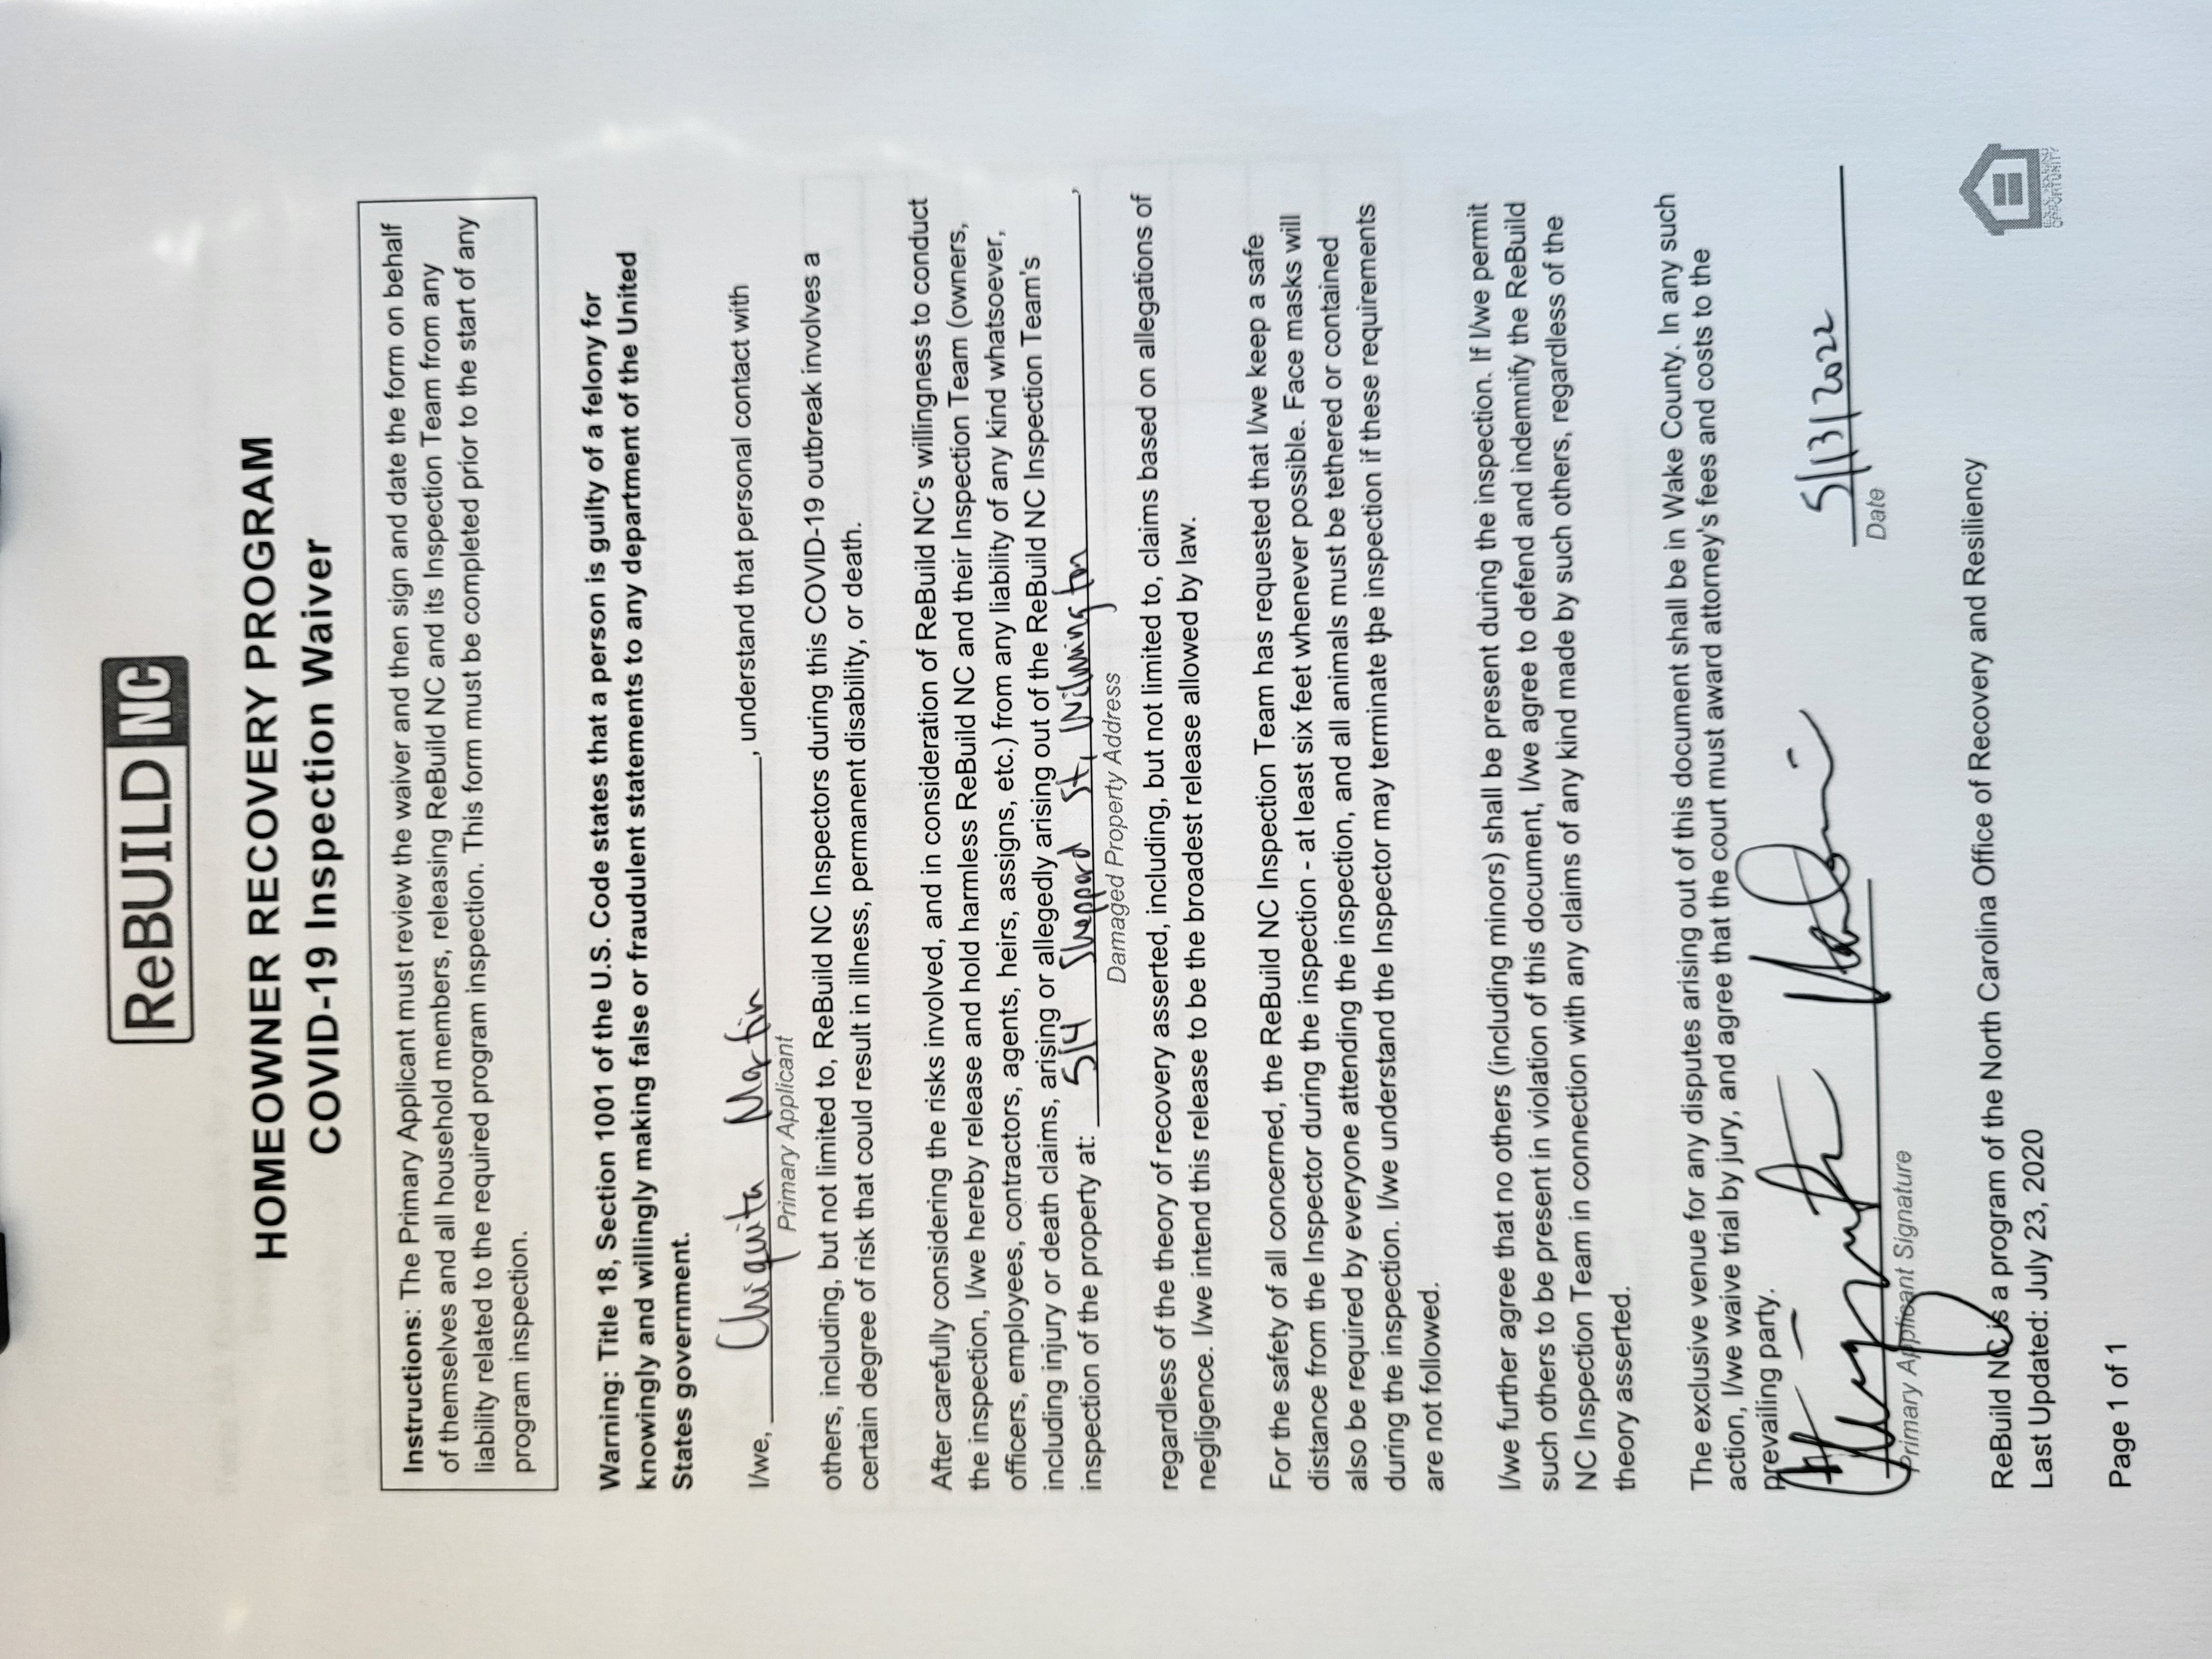 ReBUILD NC
HOMEOWNER RECOVERY PROGRAM
COVID-19 Inspection Waiver
Instructions: The Primary Applicant must review the waiver and then sign and date the form on behalf
of themselves and all household members, releasing ReBuild NC and its Inspection Team from any
liability related to the required program inspection. This form must be completed prior to the start of any
program inspection.
Warning: Title 18, Section 1001 of the U.S. Code states that a person is guilty of a felony for
knowingly and willingly making false or fraudulent statements to any department of the United
States government.
I/we, Chiquita Martin, understand that personal contact with
Primary Applicant
others, including, but not limited to, ReBuild NC Inspectors during this COVID-19 outbreak involves a
certain degree of risk that could result in illness, permanent disability, or death.
After carefully considering the risks involved, and in consideration of ReBuild NC's willingness to conduct
the inspection, I/we hereby release and hold harmless ReBuild NC and their Inspection Team (owners,
officers, employees, contractors, agents, heirs, assigns, etc.) from any liability of any kind whatsoever,
including injury or death claims, arising or allegedly arising out of the ReBuild NC Inspection Team's
inspection of the property at: 514 Sheppard St, Wilmington,
Damaged Property Address
regardless of the theory of recovery asserted, including, but not limited to, claims based on allegations of
negligence. I/we intend this release to be the broadest release allowed by law.
For the safety of all concerned, the ReBuild NC Inspection Team has requested that I/we keep a safe
distance from the Inspector during the inspection - at least six feet whenever possible. Face masks will
also be required by everyone attending the inspection, and all animals must be tethered or contained
during the inspection. I/we understand the Inspector may terminate the inspection if these requirements
are not followed.
I/we further agree that no others (including minors) shall be present during the inspection. If I/we permit
such others to be present in violation of this document, I/we agree to defend and indemnify the ReBuild
NC Inspection Team in connection with any claims of any kind made by such others, regardless of the
theory asserted.
The exclusive venue for any disputes arising out of this document shall be in Wake County. In any such
action, I/we waive trial by jury, and agree that the court must award attorney's fees and costs to the
prevailing party.
5/13/2022
Primary Applicant Signature
Date
ReBuild NC is a program of the North Carolina Office of Recovery and Resiliency
Last Updated: July 23, 2020
EQUAL HOUSING
OPPORTUNITY
Page 1 of 1